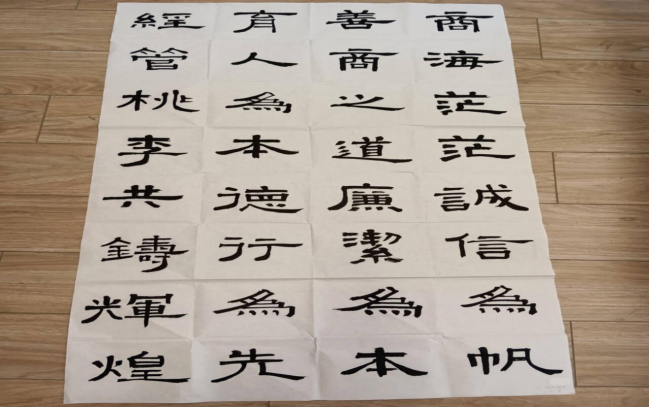 商海茫茫誠信為帆
善商之道廉潔為本
育人為本德行為先
經管桃李共鑄輝煌